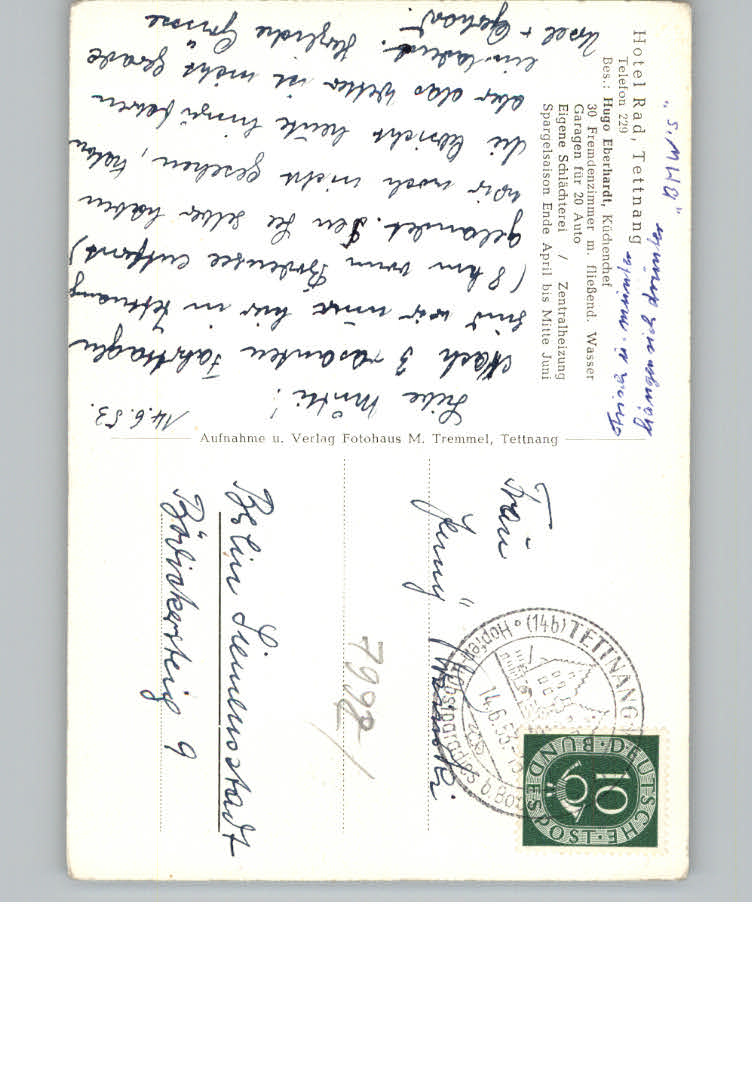 Hotel Rad, Tettnang
Telefon 229
Bes.: Hugo Eberhardt, Küchenchef
30 Fremdenzimmer m. fließend. Wasser
Garagen für 20 Auto
Eigene Schlächterei / Zentralheizung
Spargelsaison Ende April bis Mitte Juni
14.6.53.
Liebe Mutti!
Nach 3 rasanten Fahrttagen
sind wir nun hier in Tettnang
(8 km vom Bodensee entfernt)
gelandet. Den See selber haben
wir noch nicht gesehen, haben
die Absicht heute hinzufahren
aber das Wetter ist nicht gerade
einladend. Herzliche Grüsse
Ursel + Gerhard
Aufnahme u. Verlag Fotohaus M. Tremmel, Tettnang
Frau
Jenny
Berlin Siemensstadt
9
7992/
(14b) TETTNANG
14.6.53
10
DEUTSCHE BUNDESPOST